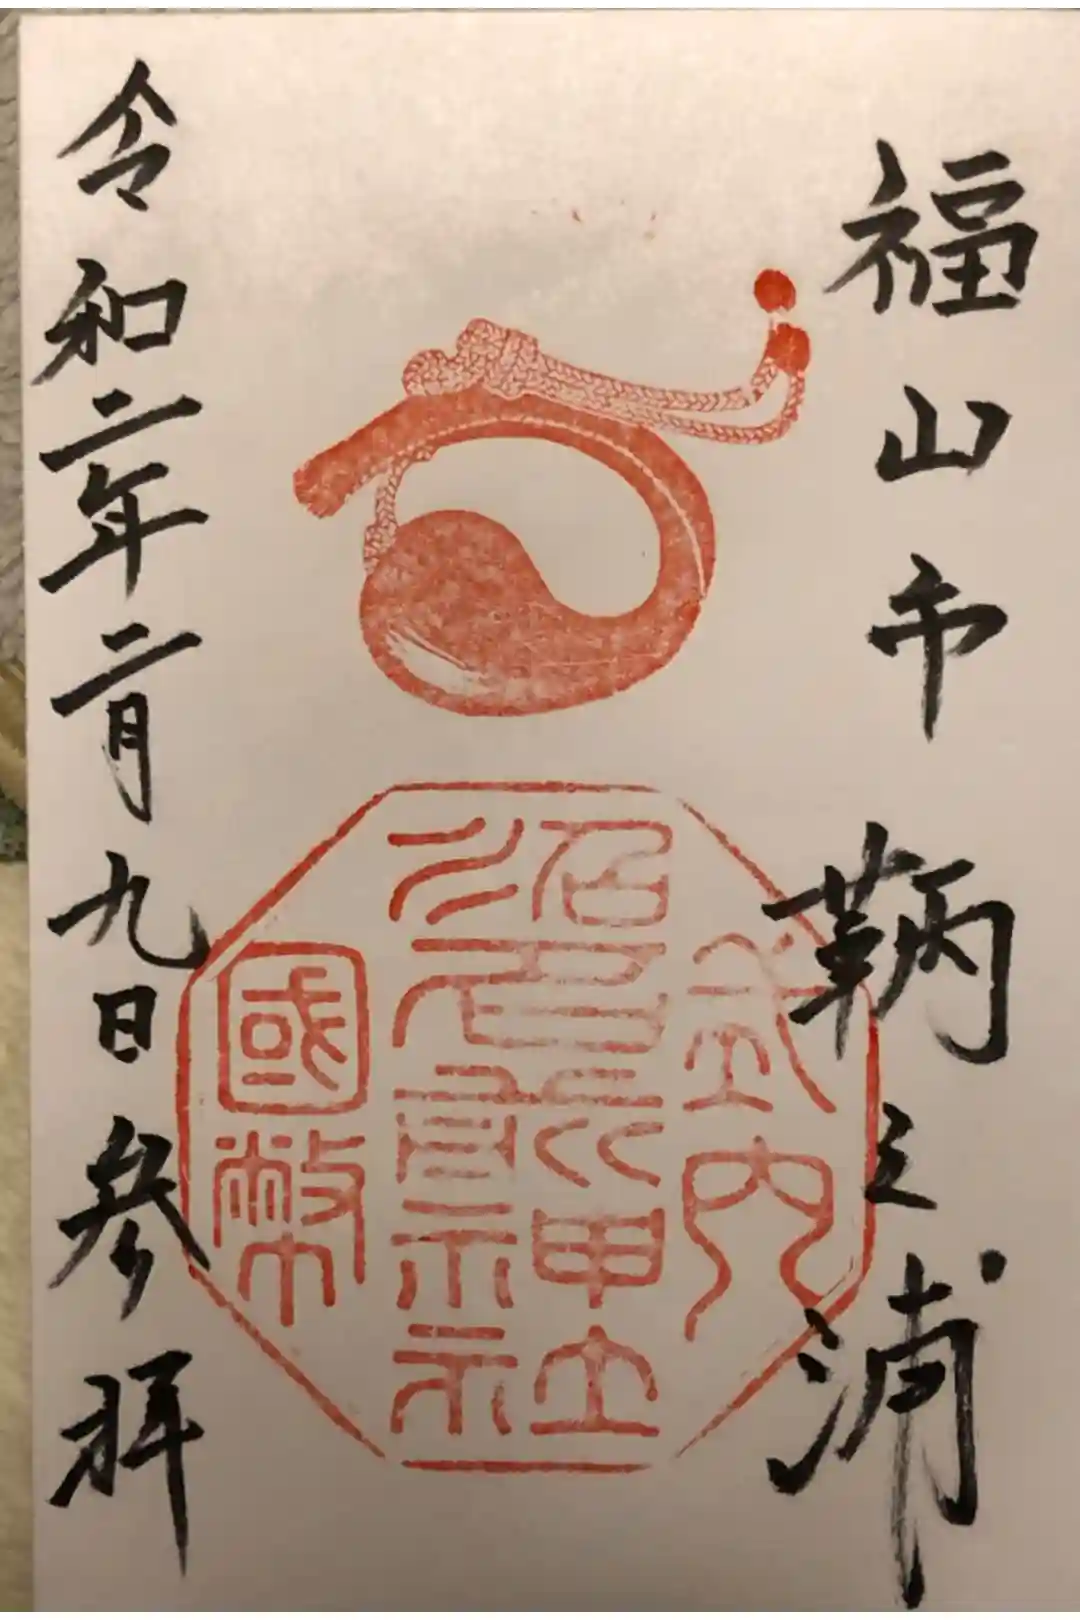 福山市 鞆之浦
式内
沼名前神社
國幣
令和二年二月九日参拝